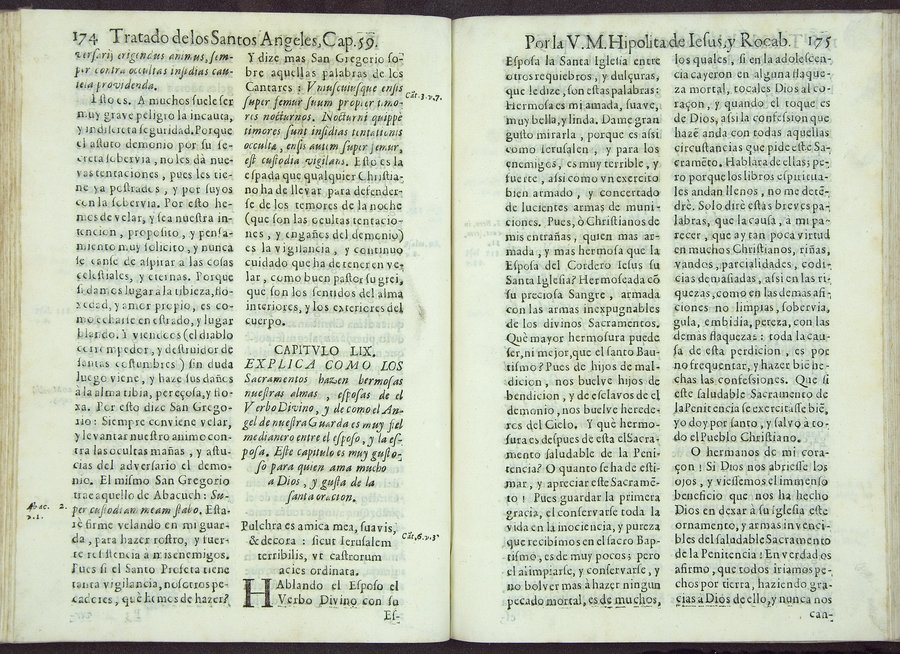 174 Tratado de los Santos Angeles, Cap. 59.
versarij erigendus animus, sem-
per contra occultas insidias cau-
tela providenda.
Esto es. A muchos suele ser
muy grave peligro la incauta,
y indiscreta seguridad. Porque
el astuto demonio por su se-
creta sobervia, no les dà nue-
vas tentaciones, pues les tie-
ne ya postrados, y por suyos
con la sobervia. Por esto he-
mos de velar, y sea nuestra in-
tencion, proposito, y pensa-
miento muy solicito, y nunca
se canse de aspirar a las cosas
celestiales, y eternas. Porque
si damos lugar a la tibieza, flo-
xedad, y amor propio, es co-
mo echarse en estrado, y lugar
blando. Y viendoes (el diablo
corrompedor, y destruidor de
santas costumbres) sin duda
luego viene, y haze sus daños
à la alma tibia, pereçosa, y flo-
xa. Por esto dize San Grego-
rio: Siempre conviene velar,
y levantar nuestro animo con-
tra las ocultas mañas, y astu-
cias del adversario el demo-
nio. El mismo San Gregorio
trae aquello de Abacuch: Su-
per custodiam meam stabo. Esta-
rè firme velando en mi guar-
da, para hazer rostro, y fuer-
te resistencia a mis enemigos.
Pues si el Santo Profeta tiene
tanta vigilancia, nosotros pe-
cadores, què hemos de hazer?
Abac. 2.
v. 1.
Y dize mas San Gregorio so-
bre aquellas palabras de los
Cantares: Vniuscuiusque ensis
super femur suum propter timo-
res nocturnos. Nocturni quippè
timores sunt insidiæ tentationis
occultæ, ensis autem super femur,
est custodia vigilans. Esto es la
espada que qualquier Christia-
no ha de llevar para defender-
se de los temores de la noche
(que son las ocultas tentacio-
nes, y engaños del demonio)
es la vigilancia, y continuo
cuidado que ha de tener en ve-
lar, como buen pastor su grei,
que son los sentidos del alma
interiores, y los exteriores del
cuerpo.
Cãt. 3. v. 7.
CAPITVLO LIX.
EXPLICA COMO LOS
Sacramentos hazen hermosas
nuestras almas, esposas de el
Verbo Divino, y de como el An-
gel de nuestra Guarda es muy fiel
medianero entre el esposo, y la es-
posa. Este capitulo es muy gusto-
so para quien ama mucho
a Dios, y gusta de la
santa oracion.
Pulchra es amica mea, suavis,
& decora: sicut Ierusalem
terribilis, vt castrorum
acies ordinata.
Cãt. 6. v. 3.
HAblando el Esposo el
Verbo Divino con su
Es-
Por la V. M. Hipolita de Iesus, y Rocab. 175
Esposa la Santa Iglesia entre
otros requiebros, y dulçuras,
que le dize, son estas palabras:
Hermosa es mi amada, suave,
muy bella, y linda. Dame gran
gusto mirarla, porque es assi
como Ierusalen, y para los
enemigos, es muy terrible, y
fuerte, assi como vn exercito
bien armado, y concertado
de lucientes armas de muni-
ciones. Pues, ò Christianos de
mis entrañas, quien mas ar-
mada, y mas hermosa que la
Esposa del Cordero Iesus su
Santa Iglesia? Hermoseada cõ
su preciosa Sangre, armada
con las armas inexpugnables
de los divinos Sacramentos.
Què mayor hermosura puede
ser, ni mejor, que el santo Bau-
tismo? Pues de hijos de mal-
dicion, nos buelve hijos de
bendicion, y de esclavos de el
demonio, nos buelve herede-
ros del Cielo. Y què hermo-
sura es despues de esta el Sacra-
mento saludable de la Peni-
tencia? O quanto se ha de esti-
mar, y apreciar este Sacramẽ-
to! Pues guardar la primera
gracia, el conservarse toda la
vida en la inociencia, y pureza
que recibimos en el sacro Bap-
tismo, es de muy pocos; pero
el alimpiarse, y conservarse, y
no bolver mas à hazer ningun
pecado mortal, es de muchos,
los quales, si en la adolescen-
cia cayeron en alguna flaque-
za mortal, tocales Dios al co-
raçon, y quando el toque es
de Dios, assi la confession que
hazẽ anda con todas aquellas
circustancias que pide este Sa-
cramẽto. Hablara de ellas; pe-
ro porque los libros espiritua-
les andan llenos, no me detẽ-
drè. Solo dirè estas breves pa-
labras, que la causa, a mi pa-
recer, que ay tan poca virtud
en muchos Christianos, riñas,
vandos, parcialidades, codi-
cias demasiadas, assi en las ri-
quezas, como en las demas afi-
ciones no limpias, sobervia,
gula, embidia, pereza, con las
demas flaquezas: toda la cau-
sa de esta perdicion, es por
no frequentar, y hazer biẽ he-
chas las confessiones. Que si
este saludable Sacramento de
la Penitencia se exercitasse biẽ,
yo doy por santo, y salvo à to-
do el Pueblo Christiano.
O hermanos de mi cora-
çon! Si Dios nos abriesse los
ojos, y viessemos el immenso
beneficio que nos ha hecho
Dios en dexar à su Iglesia este
ornamento, y armas invenci-
bles del saludable Sacramento
de la Penitencia: En verdad os
afirmo, que todos iriamos pe-
chos por tierra, haziendo gra-
cias à Dios de ello, y nunca nos
can-